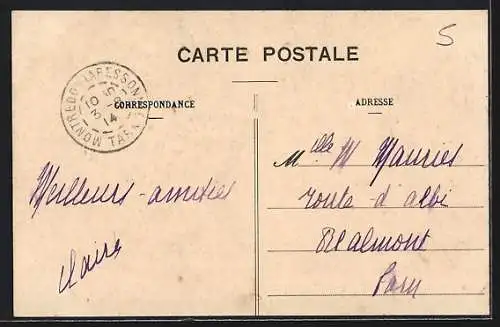 5
CARTE POSTALE
MONTREDON-LABESSONNIE
10
3 -8
14
TARN
CORRESPONDANCE
ADRESSE
Meilleurs amitiés
Claire
Mlle M Mauriès
route d'albi
Réalmont
Tarn